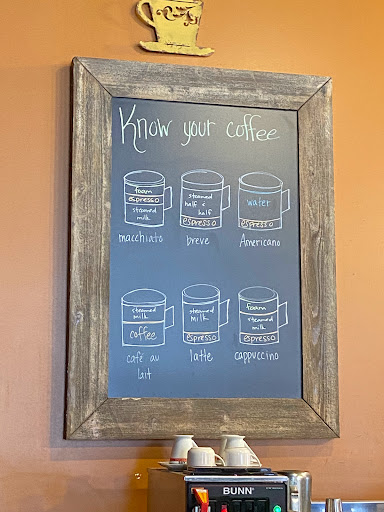 Know your coffee
foam
espresso
steamed
milk
macchiato
steamed
half &
half
espresso
breve
water
espresso
Americano
steamed
milk
coffee
café au
lait
steamed
milk
espresso
latte
foam
steamed
milk
espresso
cappuccino
BUNN